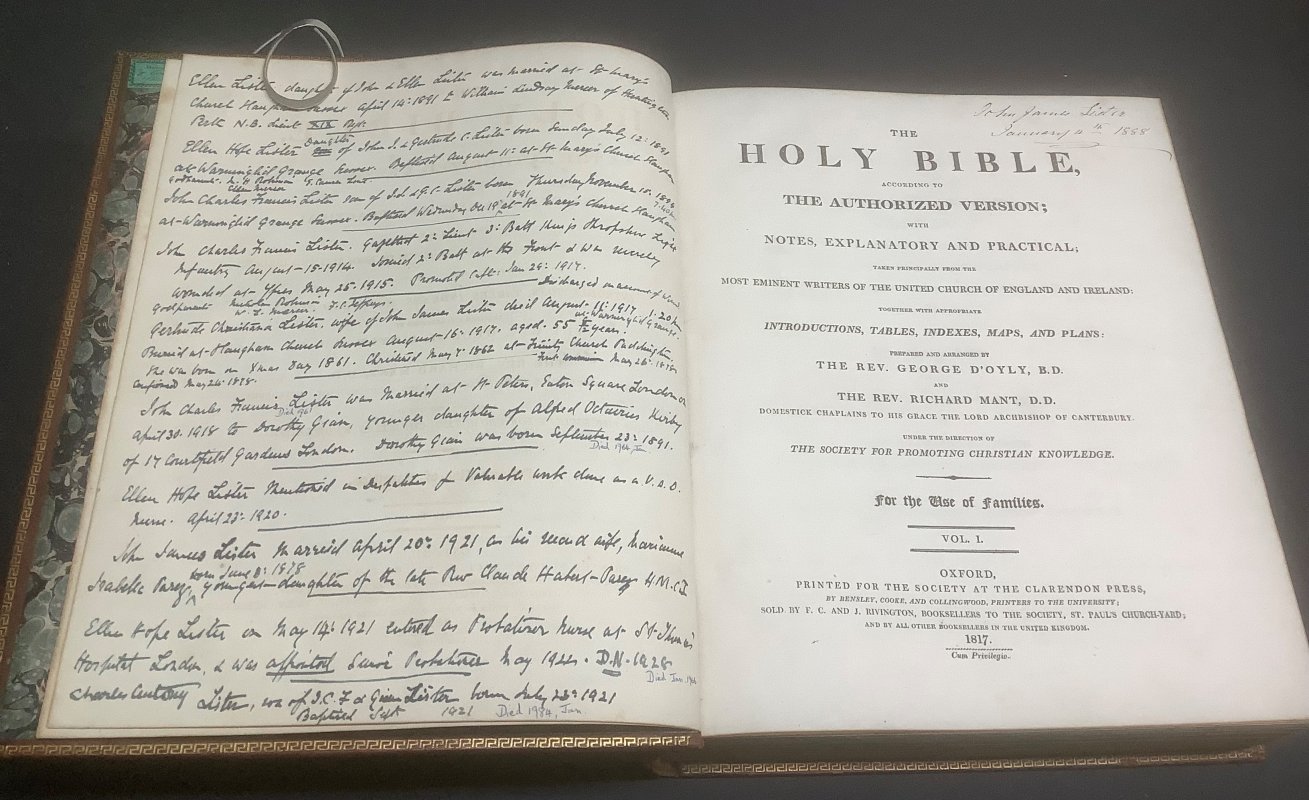 Ellen Lister daughter of John & Ellen Lister was married at St Mary's
Church Slaugham Sussex April 14th 1891 to William Lindsay Mercer of Huntington
Perth N.B. Lieut XIX Regt.
Daughter
Ellen Hope Lister of John J. & Gertrude C. Lister born Sunday July 12th 1891
at Warninglid Grange Sussex. Baptised August 11th at St Mary's Church Slaugham
Ellen Mercer
John Charles Francis Lister son of J.J. & G.C. Lister born Thursday November
at Warninglid Grange Sussex. Baptised Wednesday at St Mary's Church Slaugham
John Charles Francis Lister. Gazetted 2nd Lieut 3rd Batt King's Shropshire Light
Infantry August 15 1914. Joined 2nd Batt at the Front & was severely
wounded at Ypres May 25th 1915. Promoted Capt: Jan 29th 1917.
Discharged on account of
Godparents
Gertrude Christiana Lister, wife of John James Lister died August 11th 1917 1.20
at Warninglid Grange.
Buried at Slaugham Church Sussex August 16th 1917. aged 55 1/2 years.
She was born on Xmas Day 1861. Christened May 7th 1862 at Trinity Church Paddington.
Confirmed May 24th 1878. First Communion May 26th 1878
John Charles Francis Lister was Married at St Peters, Eaton Square London on
Died
April 30th 1918 to Dorothy Giain, younger daughter of Alfred Octavius Kirby
of 17 Courtfield Gardens London. Dorothy Giain was born September 23rd 1891.
Died 1964 Jan
Ellen Hope Lister Mentioned in Despatches for Valuable work done as a V.A.D.
Nurse. April 23rd 1920.
John James Lister Married April 20th 1921, as his second wife, Marianne
born June 8th 1878
Isabella Parez youngest daughter of the late Rev Claude Hubert Parez H.M.C.I.
Ellen Hope Lister on May 14th 1921 entered as Probationer Nurse at St Thomas's
Hospital London, & was appointed Probationer May 1922. D.N. 1928
Died Jan
Charles Antony Lister, son of J.C.F. & Giain Lister born July 22nd 1921
Baptised Sept 1921 Died 1984, Jan.
John James Lister
January 4th 1888
THE
HOLY BIBLE,
ACCORDING TO
THE AUTHORIZED VERSION;
WITH
NOTES, EXPLANATORY AND PRACTICAL;
TAKEN PRINCIPALLY FROM THE
MOST EMINENT WRITERS OF THE UNITED CHURCH OF ENGLAND AND IRELAND:
TOGETHER WITH APPROPRIATE
INTRODUCTIONS, TABLES, INDEXES, MAPS, AND PLANS:
PREPARED AND ARRANGED BY
THE REV. GEORGE D'OYLY, B.D.
AND
THE REV. RICHARD MANT, D.D.
DOMESTICK CHAPLAINS TO HIS GRACE THE LORD ARCHBISHOP OF CANTERBURY.
UNDER THE DIRECTION OF
THE SOCIETY FOR PROMOTING CHRISTIAN KNOWLEDGE.
For the Use of Families.
VOL. I.
OXFORD,
PRINTED FOR THE SOCIETY AT THE CLARENDON PRESS,
BY BENSLEY, COOKE, AND COLLINGWOOD, PRINTERS TO THE UNIVERSITY;
SOLD BY F. C. AND J. RIVINGTON, BOOKSELLERS TO THE SOCIETY, ST. PAUL'S CHURCH-YARD;
AND BY ALL OTHER BOOKSELLERS IN THE UNITED KINGDOM.
1817.
Cum Privilegio.